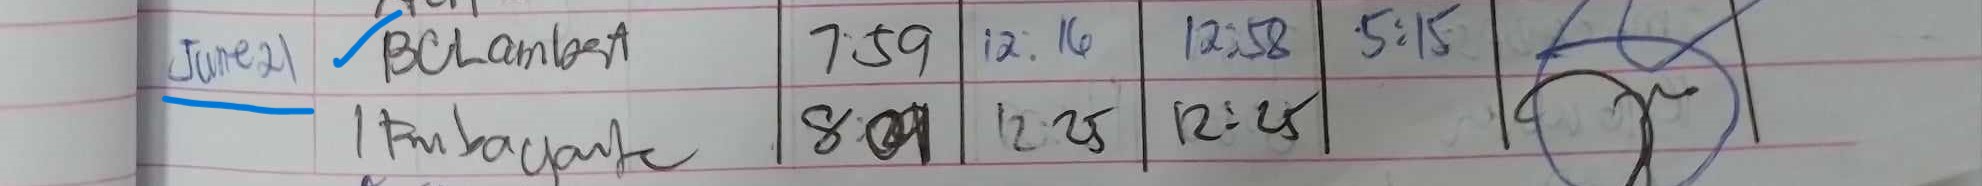 June 21 BCLambert 7:59 12:16 12:58 5:15
8:01 12:25 12:25